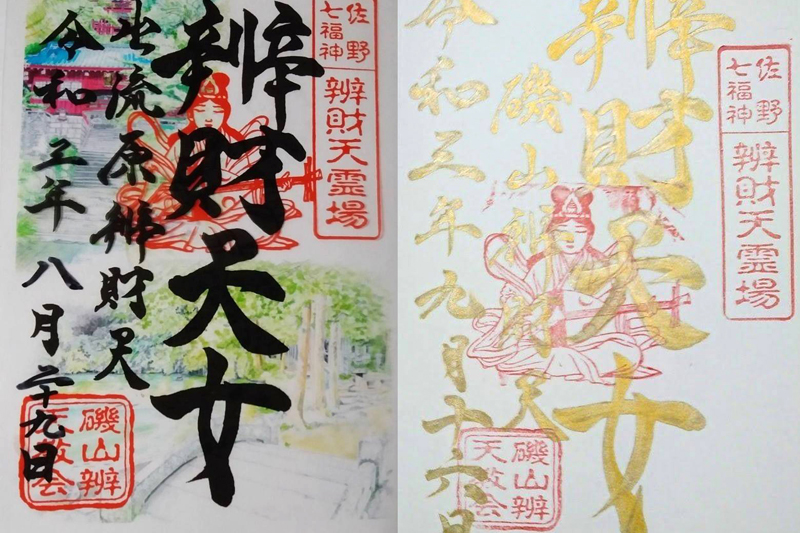 佐野
七福神
辨財天霊場
辨財天女
出流原辨財天
令和三年八月二十九日
磯山辨
天教会
佐野
七福神
辨財天霊場
辨財天女
磯山辨財天
令和三年九月十六日
磯山辨
天教会